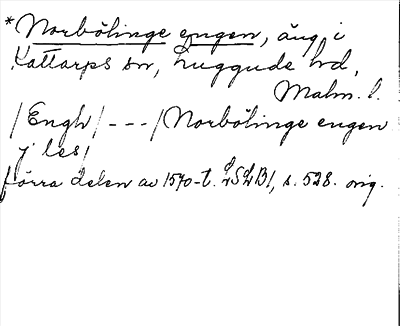 *Norbölinge engen, äng i
Kattarps sn, Luggude hd,
Malm. l.
/Engh/ --- / Norbölinge engen
j les/
förra delen av 1570-t. LSLB1, s. 528. orig.